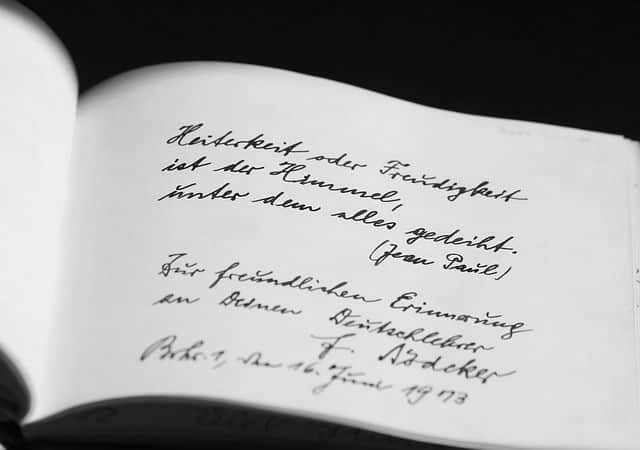 Heiterkeit oder Freudigkeit
ist der Himmel,
unter dem alles gedeiht.
(Jean Paul)
Zur freundlichen Erinnerung
an Deinen Deutschlehrer
F.
1, den 16. Juni 1973